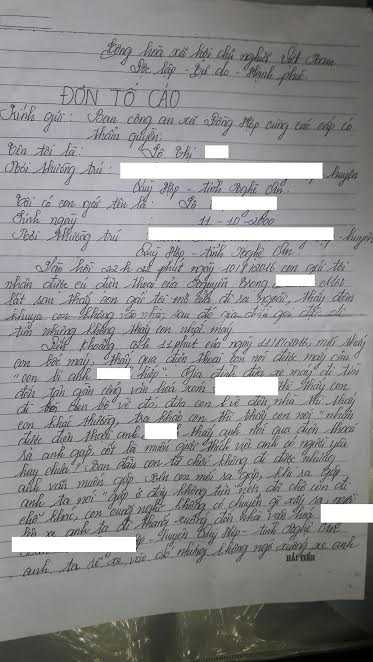 Cộng hoà xã hội chủ nghĩa Việt Nam
Độc lập - Tự do - Hạnh phúc
ĐƠN TỐ CÁO
Kính gửi: Ban công an xã Đồng Hợp cùng các cấp có
thẩm quyền.
Tên tôi là: Lô Thị
Nơi thường trú: huyện
Quỳ Hợp - tỉnh Nghệ An.
Tôi có con gái tên là: Lô
Sinh ngày: 11 - 10 - 2000
Nơi thường trú huyện
Quỳ Hợp - tỉnh Nghệ An.
Vào hồi 22h phút ngày 10/8/2016 con gái tôi
nhận được cú điện thoại của Nguyễn Trọng
lát sau thấy con gái tôi mở cửa đi ra ngoài, thấy đêm
khuya con không vào nhà, sau đó gia đình gọi điện đi
tìm nhưng không thấy con nhấc máy
Đến khoảng phút của ngày 11/8/2016, mới thấy
con bốc máy, thấy qua điện thoại con nói được mấy câu
"con bị anh hiếp" Gia đình đưa xe máy đi tìm
đến gần cổng văn hoá xóm thì thấy con
đi bộ về đó, đưa con về đến nhà thì thấy
con khác thường, tra khảo con thì thấy con nói "nhận
được điện thoại anh thấy anh nói qua điện thoại
là anh gặp cốt là muốn gửi "thích với anh có người yêu
hay chưa" Ban đầu con từ chối không đi được nhưng
anh vẫn muốn gặp. Nên con mới ra gặp, khi ra gặp
anh ta nói "gặp ở đây không tiện nên đi chỗ
chỗ" khác, con cũng nghĩ không có chuyện gì xảy ra, ngồi
lên xe anh ta đi thẳng xuống
Huyện Quỳ Hợp - tỉnh Nghệ An
anh ta rẽ xe vào đó nhưng không ngờ xuống xe anh
HẢI TIẾN